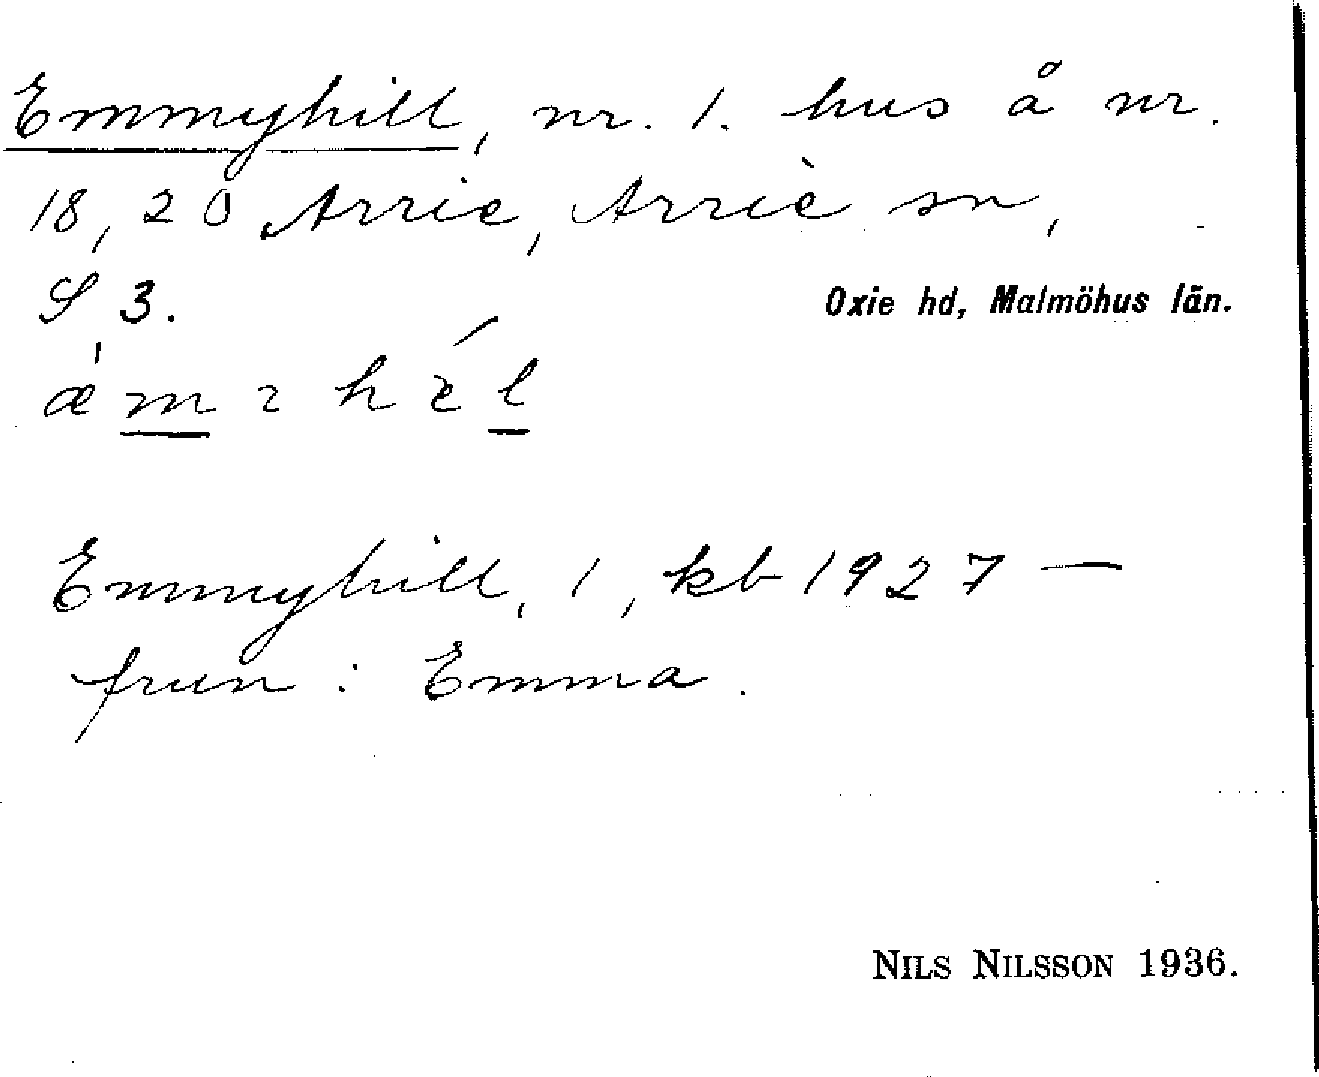 Emmyhill, nr. 1. hus å nr.
18, 20 Arrie, Arrie sn,
S 3.
Oxie hd, Malmöhus län.
Emmyhill, 1, kb 1927 —
frun: Emma.
NILS NILSSON 1936.